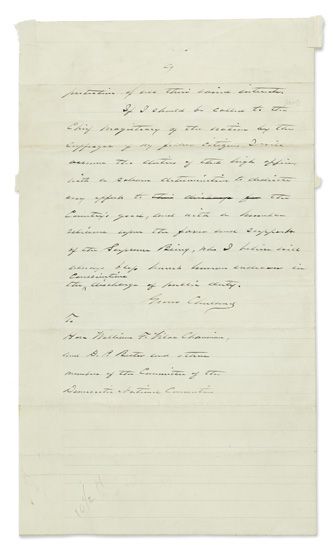 protection of their varied interests.
If I should be called to the
Chief Magistracy of the Nation by the
suffrages of my fellow citizens, I will
assume the duties of that high office
with a solemn determination to dedicate
every effort to the
Country's good, and with a humble
reliance upon the favor and support
of the Supreme Being, who I believe will
always bless honest human endeavor in
Conscientious
the discharge of public duty.
Grover Cleveland
To
Hon William F. Vilas Chairman,
and D. P. and others
members of the Committee of the
Democratic National Committee